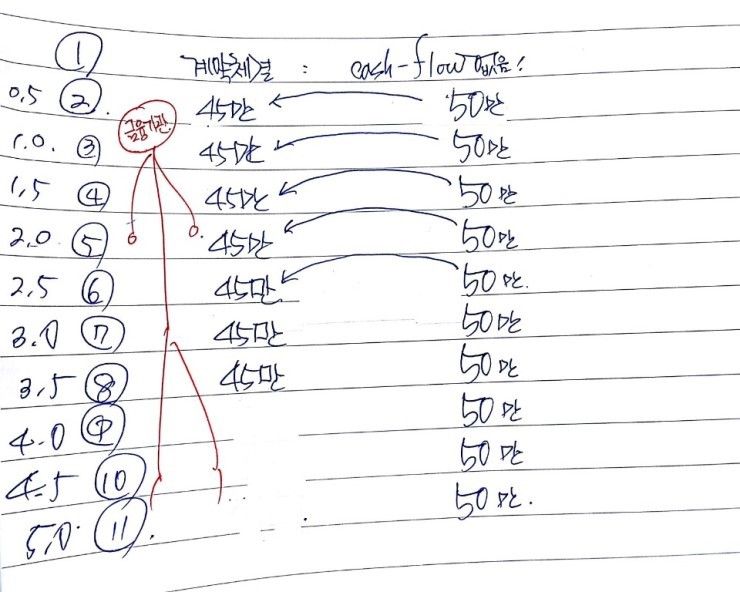 ① 계약체결 : cash-flow 없음!
0.5 ② 45만 50만
금융기관
1.0. ③ 45만 50만
1.5 ④ 45만 50만
2.0 ⑤ 45만 50만
2.5 ⑥ 45만 50만.
3.0 ⑦ 45만 50만
3.5 ⑧ 45만 50만
4.0 ⑨ 50만
4.5 ⑩ 50만
5.0 ⑪ 50만.